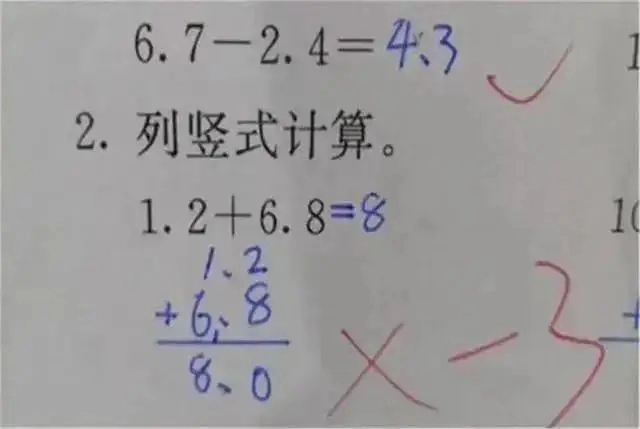 6.7－2.4＝4.3
2. 列竖式计算。
1.2＋6.8=8
1.2
+6.8
8.0
× －3